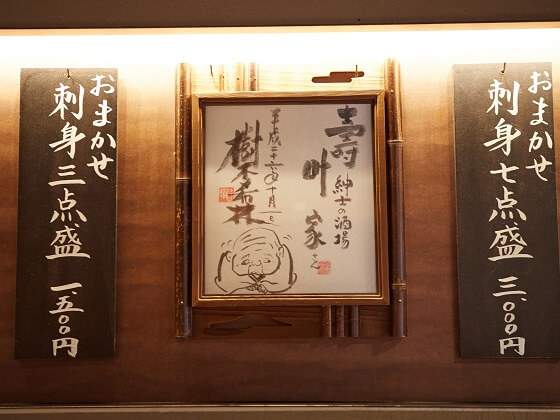 おまかせ
刺身七点盛 三、〇〇〇円
壽
叶
家さん
紳士の酒場
平成二十六年十月一日
樹木希林
おまかせ
刺身三点盛 一、五〇〇円